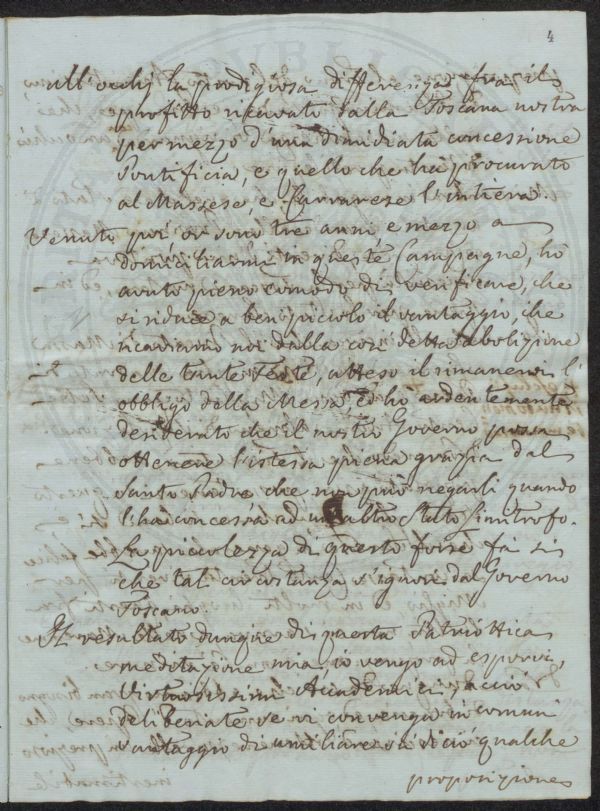 4
all'occhj la prodigiosa differenza fra il
profitto ricavato dalla Toscana nostra
per mezzo d'una dimidiata concessione
Pontificia, e quello che ha procurato
al Massese, e Carrarese l'intiera.
Venuto poi or sono tre anni e mezzo a
domiciliarmi in queste Campagne, ho
avuto pieno comodo di verificare, che
si riduce a ben piccolo il vantaggio, che
ricaviamo noi dalla così detta abolizione
delle tante Feste, atteso il rimanervi l'
obbligo della Messa. Ed ho ardentemente
desiderato che il nostro Governo possa
ottenere l'istessa piena grazia dal
Santo Padre che non può negarli quando
l'ha concessa ad un altro Stato limitrofo.
La piccolezza di questo forse fà si
che tal circostanza s'ignori dal Governo
Toscano.
Il resultato dunque di questa Patriottica
meditazione mia, io vengo ad esporvi,
Virtuosissimi Accademici, acciò
deliberiate se vi convenga in comun
vantaggio di umiliare su di ciò qualche
proposizione